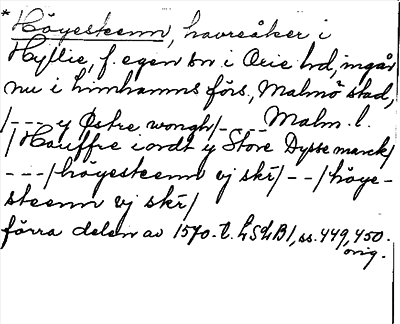 * Höyesteenn, havreåker i
Hyllie, f. egen sn i Oxie hd, ingår
nu i Limhamns förs., Malmö stad,
/--- y Østre wongh/--- Malm. l.
/Hauffre iordt y Store Dysse marck/
---/höyesteenn vj skr/--/höye-
steenn vj skr/
förra delen av 1570-t. LSLB1, ss. 449, 450.
orig.